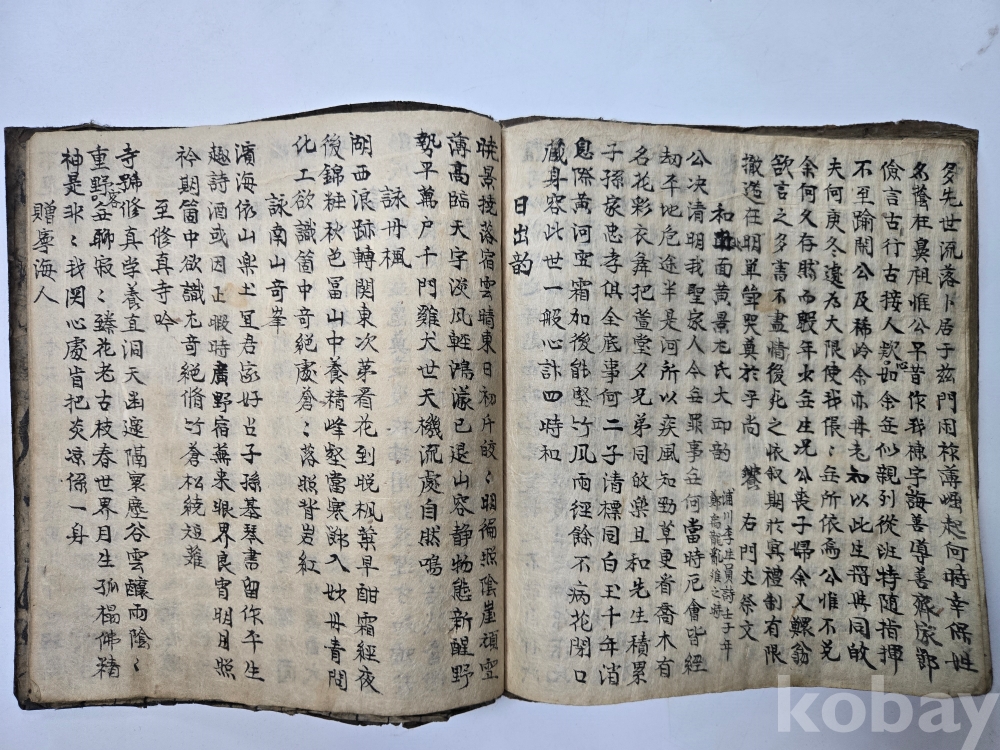 多先世流落卜居于玆門闲祿薄崛起何時幸保姓
名蔭在鼻祖惟公平昔作我棟宇誨善導善齊家部
儉言古行古接人款心如余無似親列從班特隨指揮
不至踰閑公及稀岭余亦再老初以此生將與同帥
夫何庚冬遽爲大限使我倀〻無所依焉公惟不兄
余何久存然而暇年火無生况公喪子婦余又鰥翁
欲言之多書不盡情後死之依叙期於冥禮制有限
撤造在明單斝哭奠於乎尚饗 右門丈祭文
和 面黃景 氏大 韵 浦川李生員詩士子
公決清明我聖家人今無罪事無何當時厄會皆經
劫平地危途半是河所以疾風知勁草更肴喬木有
名花彩衣舞把萱堂夕兄弟同的樂且和先生積累
子孫家忠孝俱全底事何二子清標同白玉千年消
息際黃河雪霜加後能堅竹風雨徑餘不病花閉口
藏身容此世一般心訃四時和
日出韵
曉景撓落宿雲晴東日初升皎〻明徧照陰崖頑雪
薄高臨天宇淡風輕鴻濛已退山容静物態新醒野
勢平萬戶千門雞犬世天機流處自然鳴
詠丹楓
湖西浪跡轉関東次苐看花到晩楓葉早酣霜經夜
後錦粧秋色冨山中養精峰壑當寒節入妝丹青閙
化工欲識箇中奇絶處蒼〻落照背岩紅
詠南山奇峯
濱海依山樂土冝吾家好占子孫基琴書留作平生
趣詩酒或因正暇時廣野宿蕪来眼界良宵明月照
衿期箇中欲識尤奇絶脩竹蒼松繞短蘺
至修真寺吟
寺號修真学養直洞天幽邃隔累塵谷雲釀雨陰〻
重野客無聊寂〻臻花老古枝春世界月生孤榻佛精
神是非〻我関心處肯把炎凉係一身
贈寿海人
kobay